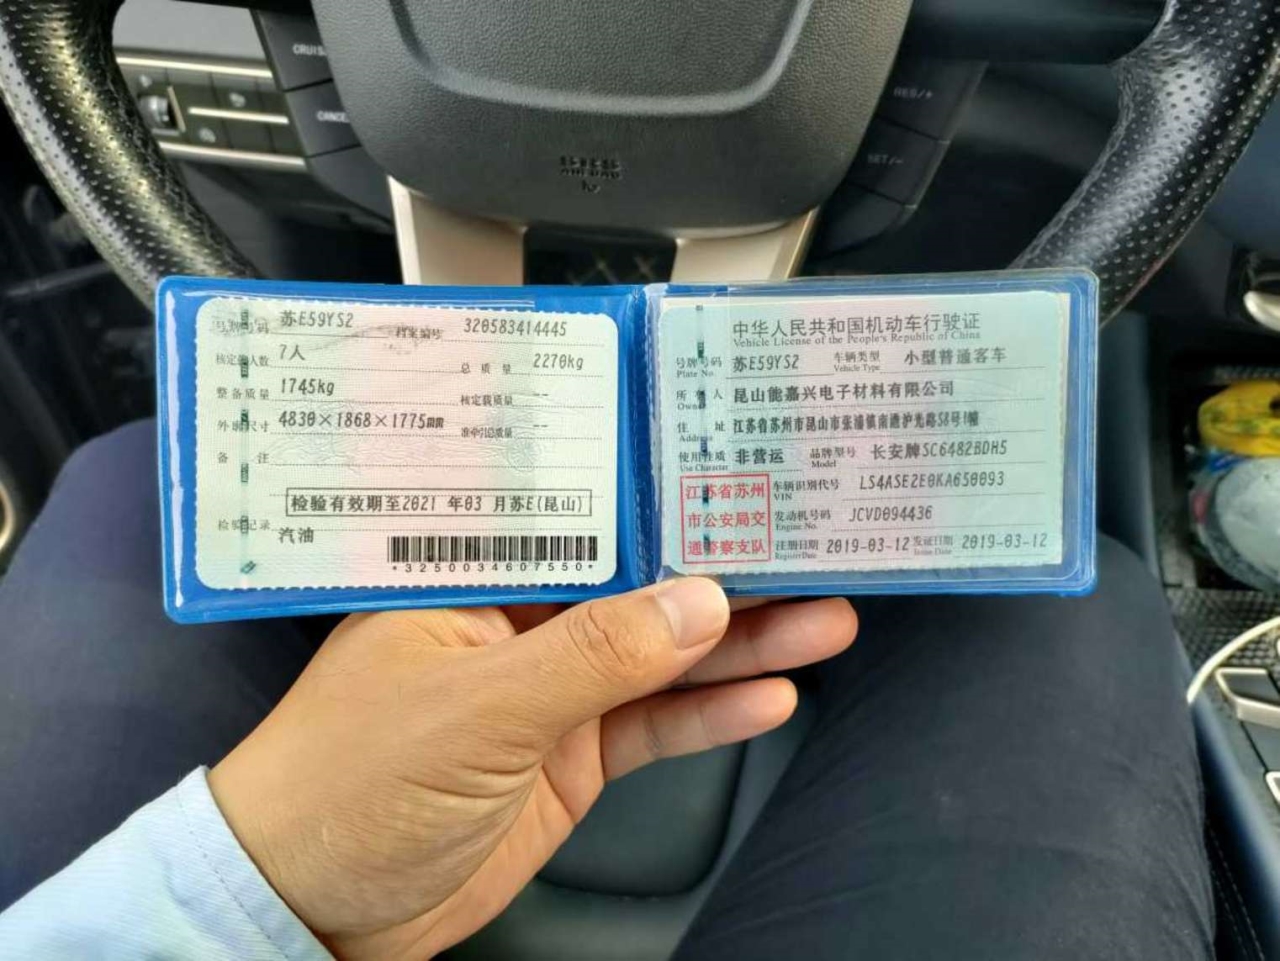 CRUIS
CANCE
RES/+
SET/-
AIRBAG
号牌号码 苏E59YS2 档案编号 320583414445
核定载人数 7人 总质量 2270kg
整备质量 1745kg 核定载质量 --
外廓尺寸 4830×1868×1775mm 准牵引总质量 --
备注
检验有效期至2021 年03 月苏E(昆山)
检验记录
汽油
*3250034607550*
中华人民共和国机动车行驶证
Vehicle License of the People's Republic of China
号牌号码 苏E59YS2 车辆类型 小型普通客车
Plate No. Vehicle Type
所有人 昆山能嘉兴电子材料有限公司
Owner
住址 江苏省苏州市昆山市张浦镇南港沪光路58号1幢
Address
使用性质 非营运 品牌型号 长安牌SC6482BDH5
Use Character Model
江苏省苏州
市公安局交
通警察支队
车辆识别代号 LS4ASE2E0KA650093
VIN
发动机号码 JCVD094436
Engine No.
注册日期 2019-03-12 发证日期 2019-03-12
Register Date Issue Date